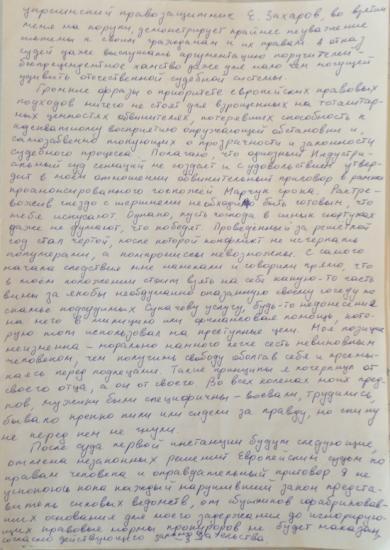 украинский правозащитник Е. Захаров, во взятии
меня на поруки, демонстрирует крайнее неуважение
к своим гражданам и их правам. А отказ
судей даже выслушать аргументацию поручителей -
беспрецедентное хамство даже для мало чем могущей
удивить отечественной судебной системы.
Громкие фразы о приоритете европейских правовых
подходов ничего не стоят для взрощенных на тоталитар-
ных ценностях обвинителях, потерявших способность к
адекватному восприятию окружающей обстановки и
самозабвенно токующих о прозрачности и законности
судебного процесса. Понятно, что одиозный Индустри-
альный суд Донецкой не подведет и с удовольствием утвер-
дит в моём отношении обвинительный приговор в рамках
проанонсированного госпожой Марчук срока. Растре-
вожив гнездо с шершнями необходимо быть готовым, что
тебя искусают. Однако, пусть господа в синих сюртуках
даже не думают, что победят. Проведённый за решёткой
год стал чертой, после которой конфликт не исчерпать
полумерами, а компромиссы невозможны. С самого
начала следствия мне намекали и говорили прямо, что
в моём положении стоит взять на себя какую-то часть
вины за якобы необдуманно оказанную своему соседу по
скамье подсудимых Букачову услугу, будь-то недонесение
на него в милицию или финансовая помощь, кото-
рую тот использовал на преступные цели. Моя позиция
неизменна - морально намного легче сесть невиновным
человеком, чем получить свободу оболгав себя и пресмы-
каясь перед подлецами. Такие принципы я почерпнул от
своего отца, а он от своего. Во всех коленах моих пред-
ков, мужики были специфичны - воевали, трудились,
бывало крепко пили или сидели за правду, но спину
не перед кем не гнули.
После суда первой инстанции будут следующие,
отмена незаконных решений Европейским судом по
правам человека и оправдательный приговор. Я не
успокоюсь пока каждый нарушивший закон предста-
витель силовых ведомств, от сфабриковав-
ших основания для моего задержания до игнорирую-
щих правовые нормы прокуроров не будет наказан,
согласно действующего законодательства.